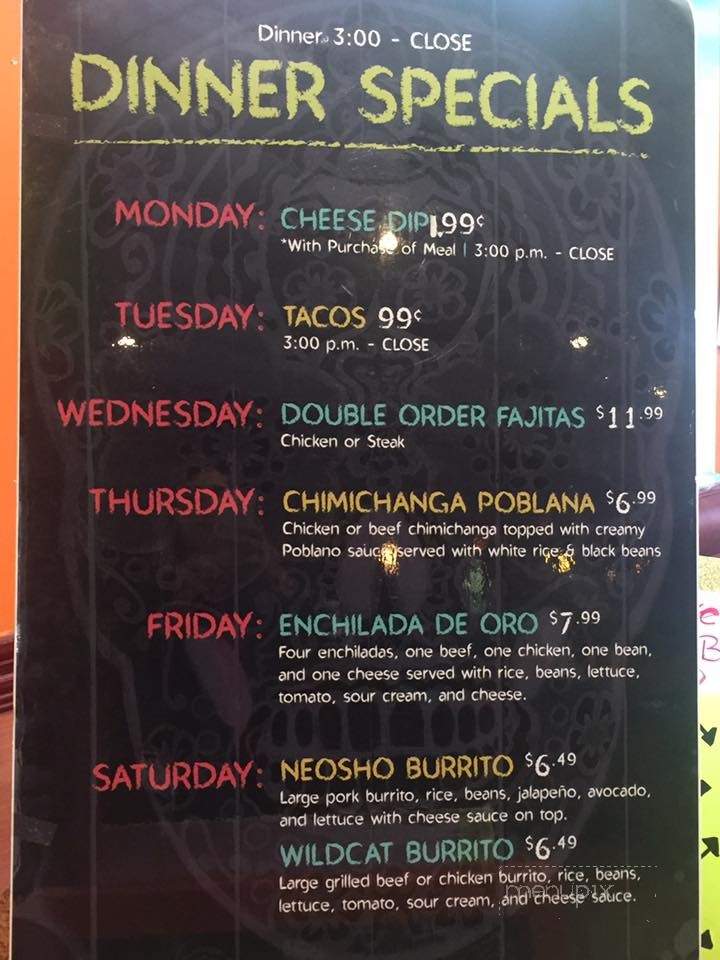 Dinner 3:00 - CLOSE
DINNER SPECIALS
MONDAY: CHEESE DIP 1.99¢
*With Purchase of Meal | 3:00 p.m. - CLOSE
TUESDAY: TACOS 99¢
3:00 p.m. - CLOSE
WEDNESDAY: DOUBLE ORDER FAJITAS $11.99
Chicken or Steak
THURSDAY: CHIMICHANGA POBLANA $6.99
Chicken or beef chimichanga topped with creamy
Poblano sauce served with white rice & black beans
FRIDAY: ENCHILADA DE ORO $7.99
Four enchiladas, one beef, one chicken, one bean,
and one cheese served with rice, beans, lettuce,
tomato, sour cream, and cheese.
SATURDAY: NEOSHO BURRITO $6.49
Large pork burrito, rice, beans, jalapeño, avocado,
and lettuce with cheese sauce on top.
WILDCAT BURRITO $6.49
Large grilled beef or chicken burrito, rice, beans,
lettuce, tomato, sour cream, and cheese sauce.
menupix